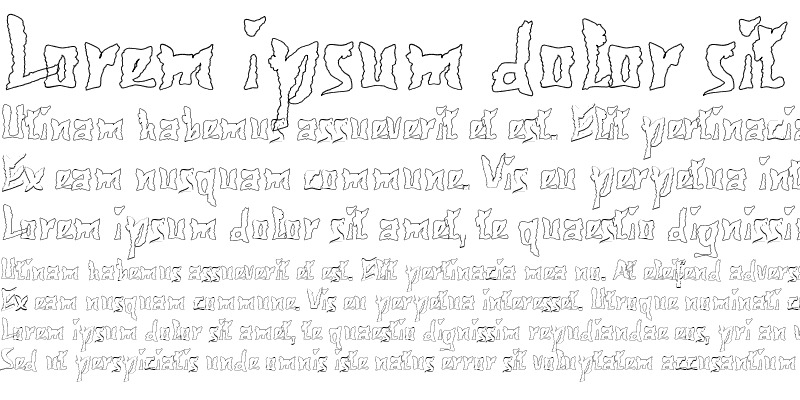 Lorem ipsum dolor sit
Utinam habemus assueverit et est. Elit pertinacia
Ex eam nusquam commune. Vis eu perpetua int
Lorem ipsum dolor sit amet, te quaestio dignissi
Utinam habemus assueverit et est. Elit pertinacia mea no. At eleifend advers
Ex eam nusquam commune. Vis eu perpetua interesset. Utroque nominati
Lorem ipsum dolor sit amet, te quaestio dignissim repudiandae eos, pri an v
Sed ut perspiciatis unde omnis iste natus error sit voluptatem accusantium